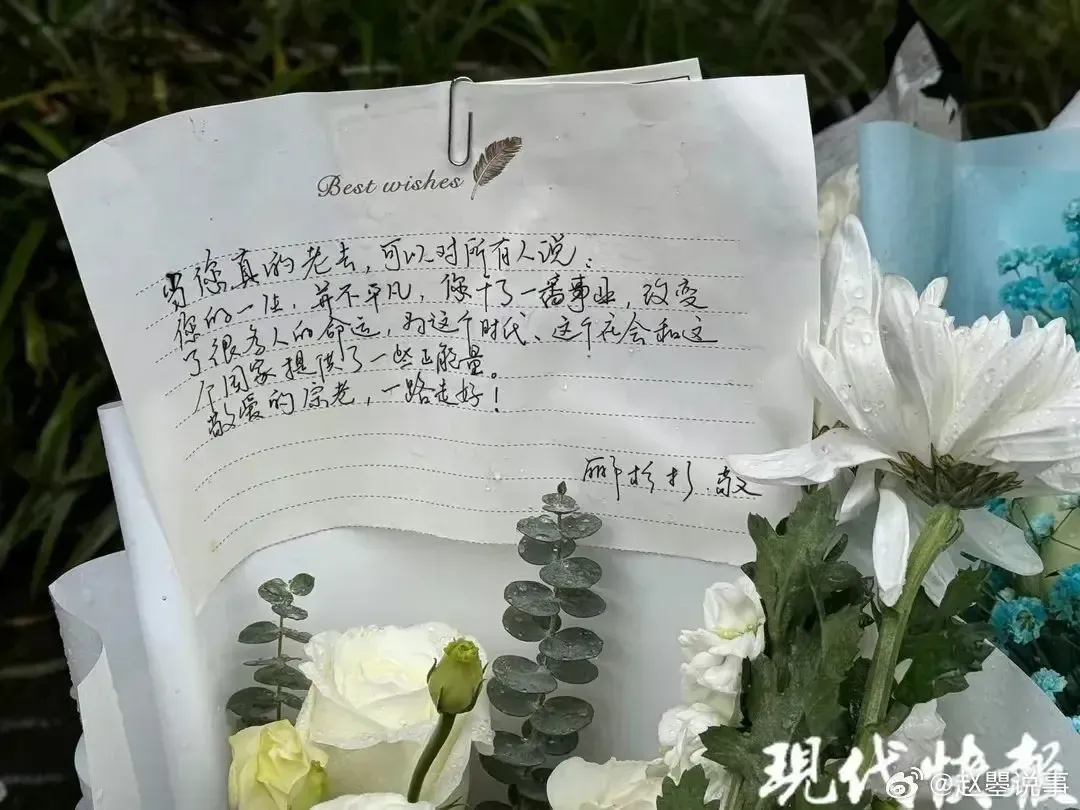 Best wishes
当您真的老去，可以对所有人说：
您的一生，并不平凡，您干了一番事业，改变
了很多人的命运，为这个时代、这个社会和这
个国家提供了一些正能量。
敬爱的宗老，一路走好！
郦杉杉 敬
现代快报
@赵曌说事